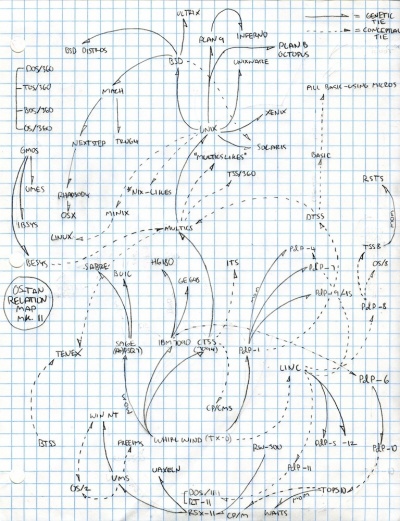 ULTRIX
PLAN 9
INFERNO
= GENETIC TIE
= CONCEPTUAL TIE
BSD DISTROS
BSD
PLAN B
OCTOPUS
UNIXWARE
DOS/360
TOS/360
BOS/360
OS/360
MACH
ALL BASIC-USING MICROS
XENIX
UNIX
NEXTSTEP
TRU64
SOLARIS
GMOS
"MULTICSLIKES"
BASIC
TSS/360
RSTS
UMES
RHAPSODY
*NIX-LIKES
OSX
MINIX
DTSS
IBSYS
LINUX
MULTICS
BESYS
SABRE
BUIC
H6180
ITS
PDP-4
TSSB
GE645
PDP-7
OS/8
OS-TAN
RELATION
MAP
MK II
PDP-9/15
PDP-8
SAGE
IBM 7090
CTSS
PDP-1
TENEX
LINC
PDP-6
CP/CMS
WIN NT
BTSS
PREEIMS
WHIRLWIND (TX-0)
RW-300
PDP-5
-12
PDP-10
VAXELN
PDP-11
OS/2
VMS
DOS/11
RT-11
TOPS10
RSX-11
CP/M
WAITS
MOM